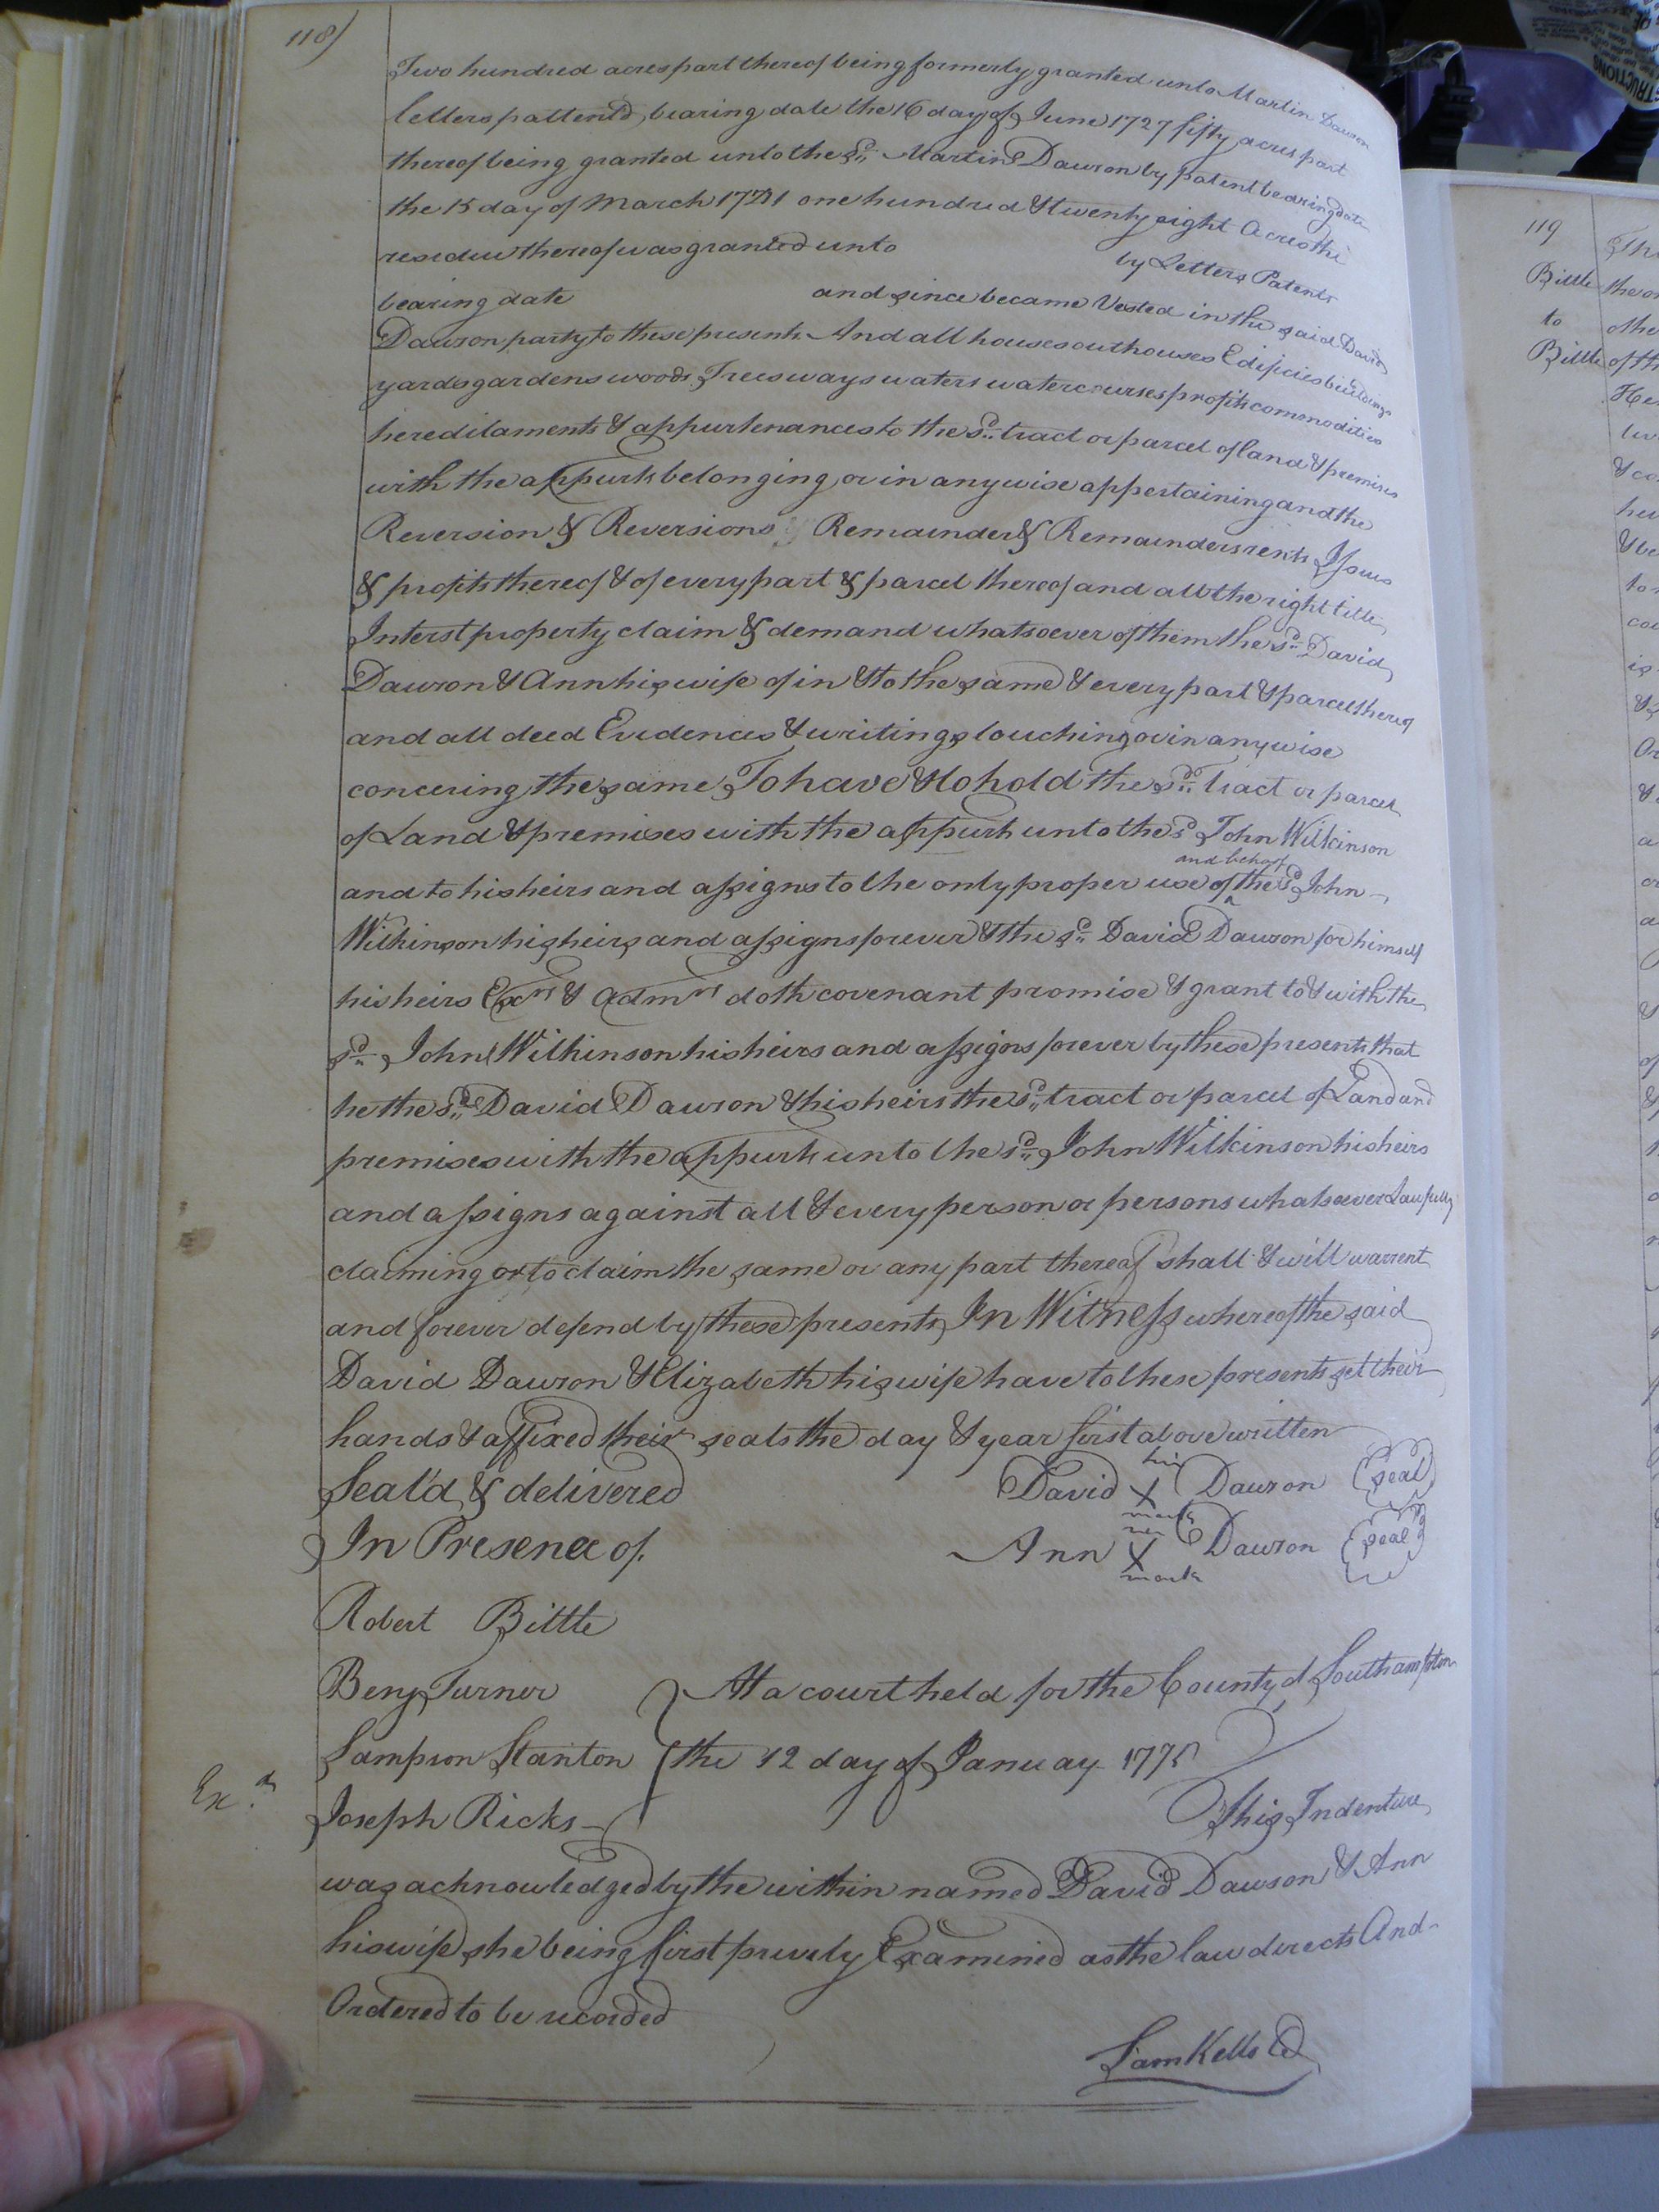 118)
Two hundred acres part thereof being formerly granted unto Martin Dawson
letters pattentd, bearing date the 16 day of June 1727 fifty acres part
thereof being granted unto the sd. Martin Dawson by patent bearing date
the 15 day of March one hundred & twenty eight Acres the
residue thereof was granted unto by Letters Patents
bearing date and since became Vested in the said David
Dawson party to these presents And all houses outhouses Edificies buildings
yards gardens woods Trees ways waters watercourses profits commodities
hereditaments & appurtenances to the sd. tract or parcel of land & premises
with the appurts belonging or in anywise appertaining and the
Reversion & Reversions Remainder & Remainders rents Issues
& profits thereof & of every part & parcel thereof and all the right title
Interst property claim & demand whatsoever of them the sd. David
Dawson & Ann his wife of in & to the same & every part & parcel thereof
and all deed Evidences & writings touching or in anywise
concering the same To have & to hold the sd. tract or parcel
of Land & premises with the appurts unto the sd. John Wilkinson
and behoof
and to his heirs and assigns to the only proper use of the sd John
Wilkinson his heirs and assigns forever & the sd. David Dawson for himself
his heirs Exrs & Admrs doth covenant promise & grant to & with the
sd. John Wilkinson his heirs and assigns forever by these presents that
he the sd. David Dawson & his heirs the sd. tract or parcel of Land and
premises with the appurts unto the sd. John Wilkinson his heirs
and assigns against all & every person or persons whatsoever Lawfully
claiming or to claim the same or any part thereof shall & will warrent
and forever defend by these presents In Witness whereof the said
David Dawson & Elizabeth his wife have to these presents set their
hands & affixed their seals the day & year first above written
his
Seal'd & delivered David X Dawson seal
mark
In Presence of. Ann X Dawson seal
mark
Robert Bittle
Benj Turner At a court held for the County of Southampton
Sampson Stanton the 12 day of Januay 1775
Exd.
Joseph Ricks This Indenture
was acknowledged by the within named David Dawson & Ann
his wife she being first privily Examined as the law directs And
Ordered to be recorded
Sam Kello
119
Bittle
to
Bittle